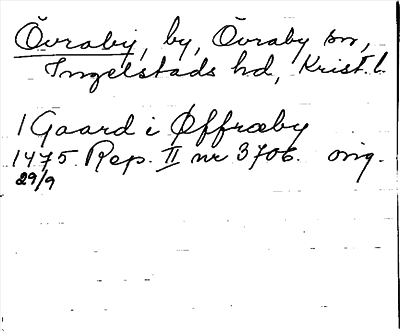 Övraby, by, Övraby sn,
Ingelstads hd, Krist. l.
1 Gaard i Øffræby
1475 Rep. II nr 3706. orig.
29/9